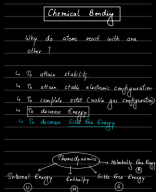 Chemical Bonding
Why do atoms react with one
other ?
↳ To attain stability
↳ To attain stable electronic configuration
↳ To complete octet (noble gas configuration)
↳ To decrease Energy
↳ To decrease Gibbs Free Energy
Thermodynamics
Helmholtz Free Energy
Internal Energy
Enthalpy
Gibbs Free Energy
U
H
G